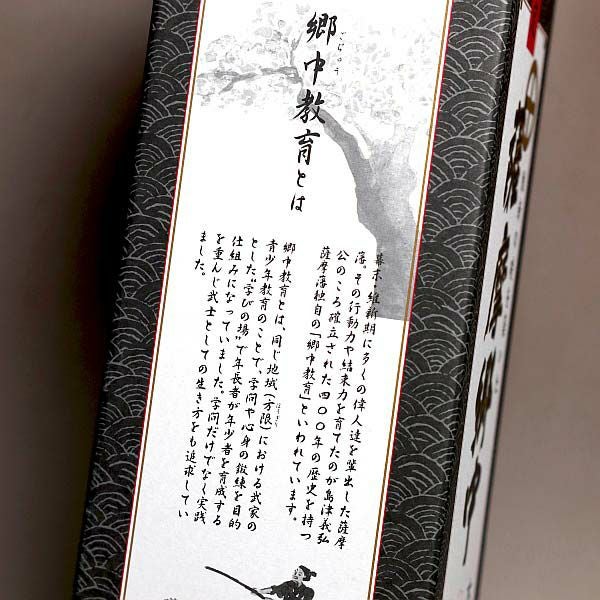 郷中教育とは
ごじゅう
幕末・維新期に多くの偉人達を輩出した薩摩
藩。その行動力や結束力を育てたのが島津義弘
公のころ確立された四〇〇年の歴史を持つ
薩摩藩独自の「郷中教育」といわれています。
郷中教育とは、同じ地域(方限)における武家の
ほうぎり
青少年教育のことで、学問や心身の鍛練を目的
とした“学びの場”で年長者が年少者を育成する
仕組みになっていました。学問だけでなく実践
を重んじ武士としての生き方をも追求してい
ました。
薩摩郷中